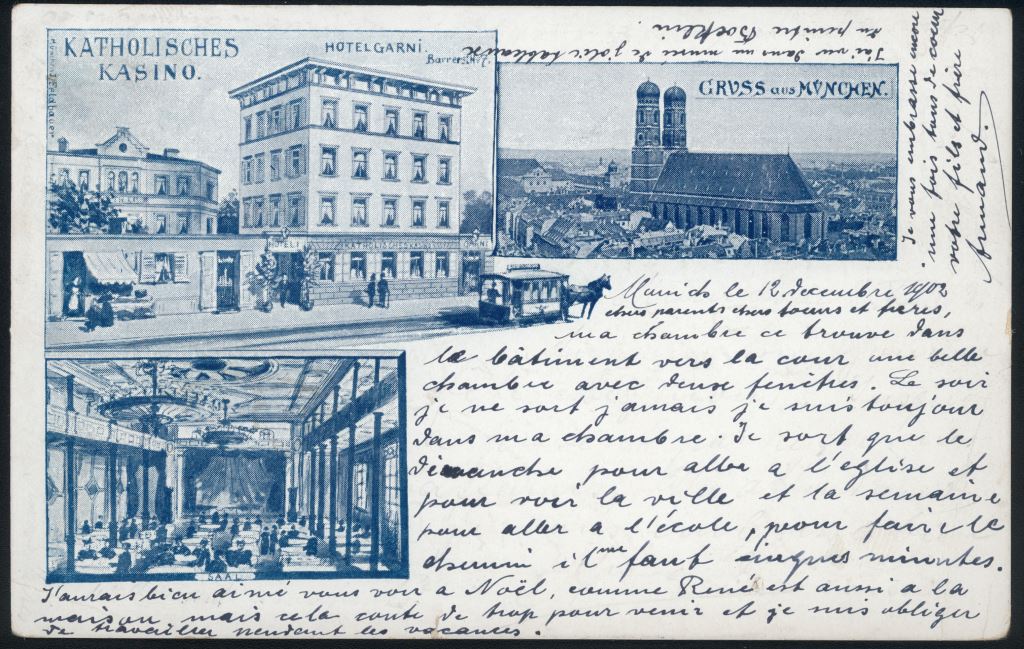 KATHOLISCHES
KASINO.
HOTEL GARNI.
Barrerstr. 7.
GRUSS aus MÜNCHEN.
HOTEL
GARNI
SAAL
Munich le 12 decembre 1902
chers parents chers soeurs et frères,
ma chambre ce trouve dans
le bâtiment vers la cour une belle
chambre avec deux fenêtres. Le soir
je ne sort jamais je suis toujour
dans ma chambre. Je sort que le
dimanche pour aller a l'eglise et
pour voir la ville et la semaine
pour aller a l'école, pour fair le
chemin il me faut cinques minutes.
J'aurais bien aimé vous voir a Noël, comme René est aussi a la
maison mais cela coute de trop pour venir et je suis obliger
de travailler pendant les vacances.
J'ai vu dans un musée de jolis tableaux
du peintre Boecklin
Je vous embrasse encore
une fois tous de coeur
votre fils et frère
Armand.